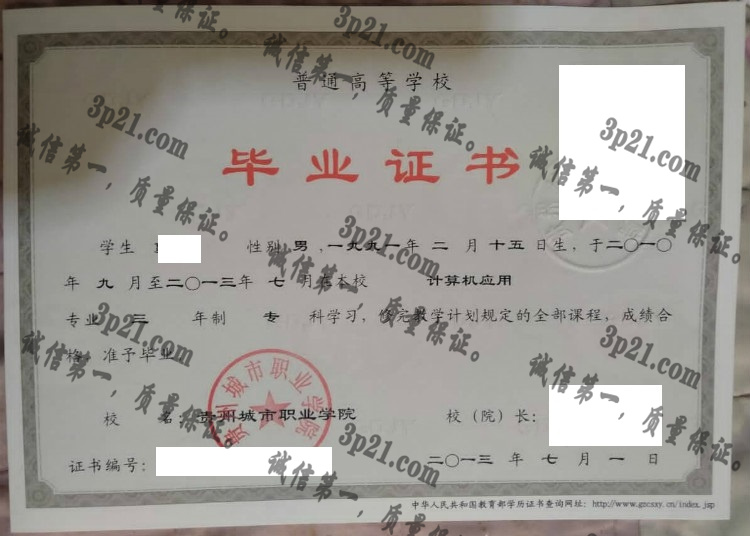 普通高等学校
毕业证书
学生 性别 男 ,一九九一年 二 月 十五 日生, 于二〇一〇
年 九 月至二〇一三年 七 月在本校 计算机应用
专业 三 年制 专 科学习, 修完教学计划规定的全部课程, 成绩合
格, 准予毕业
贵州城市职业学院
校 名: 贵州城市职业学院 校(院)长:
证书编号: 二〇一三 年 七 月 一 日
中华人民共和国教育部学历证书查询网址: http://www.gzcsxy.cn/index.jsp
3p21.com
诚信第一,质量保证。
3p21.com
诚信第一,质量保证。
3p21.com
诚信第一,质量保证。
3p21.com
诚信第一,质量保证。
3p21.com
诚信第一,质量保证。
3p21.com
诚信第一,质量保证。
3p21.com
诚信第一,质量保证。
3p21.com
诚信第一,质量保证。